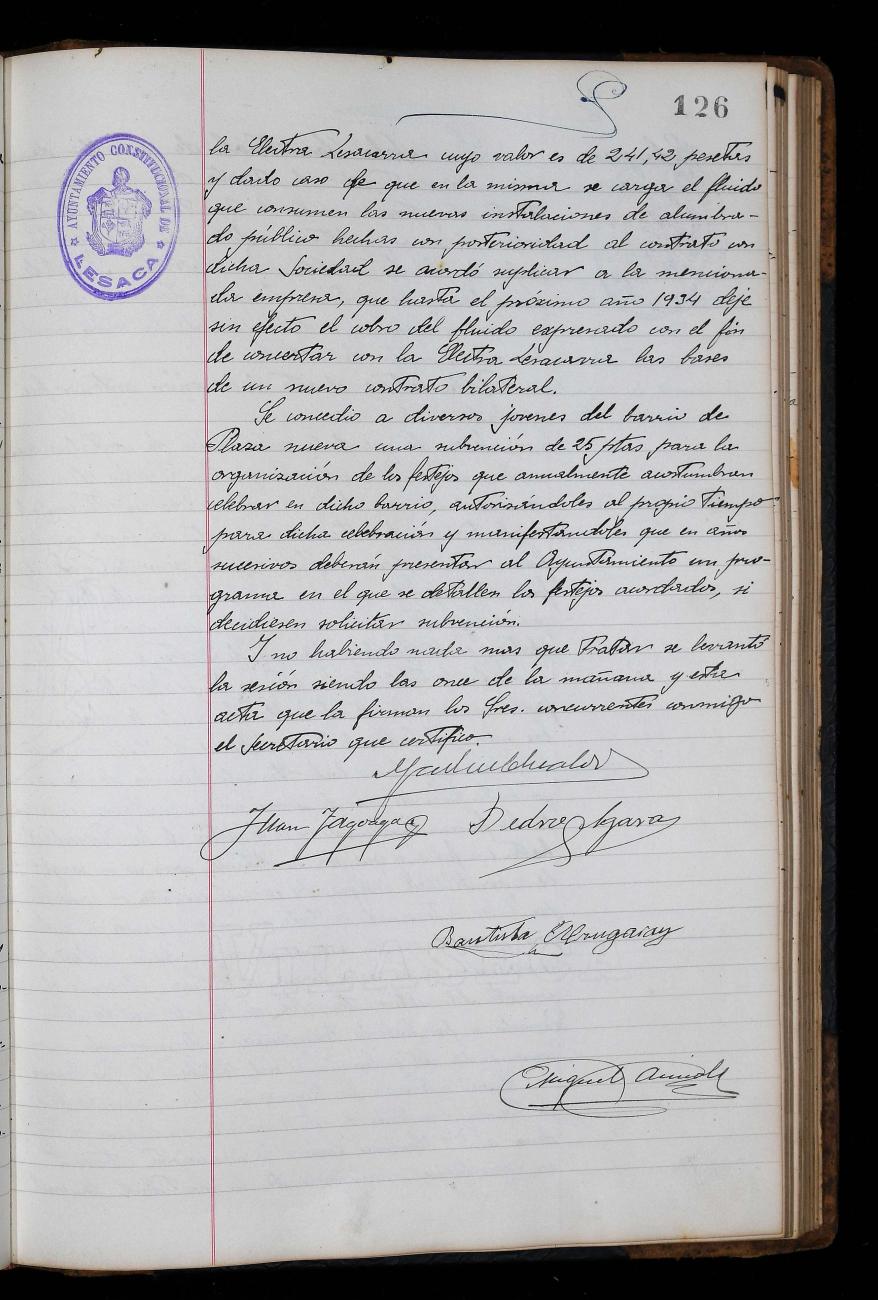 126
AYUNTAMIENTO CONSTITUCIONAL DE
LESACA
la Electra Lesacarra cuyo valor es de 241,42 pesetas
y dado caso de que en la misma se carga el fluido
que consumen las nuevas instalaciones de alumbra-
do público hechas con posterioridad al contrato con
dicha Sociedad se acordó suplicar a la menciona-
da empresa, que hasta el próximo año 1934 deje
sin efecto el cobro del fluido expresado con el fin
de concertar con la Electra Lesacarra las bases
de un nuevo contrato bilateral.
Se concedio a diversos jovenes del barrio de
Plaza nueva una subvención de 25 ptas para la
organización de los festejos que anualmente acostumbran
celebrar en dicho barrio, autorisándoles al propio tiempo
para dicha celebración y manifestandoles que en años
sucesivos deberán presentar al Ayuntamiento un pro-
grama en el que se detallen los festejos acordados, si
decidiesen solicitar subvención.
Y no habiendo nada mas que tratar se levantó
la sesión siendo las once de la mañana y esta
acta que la firman los Sres. concurrentes conmigo
el Secretario que certifico.
Juan Jagoaga
Pedro
Bautista
Miguel